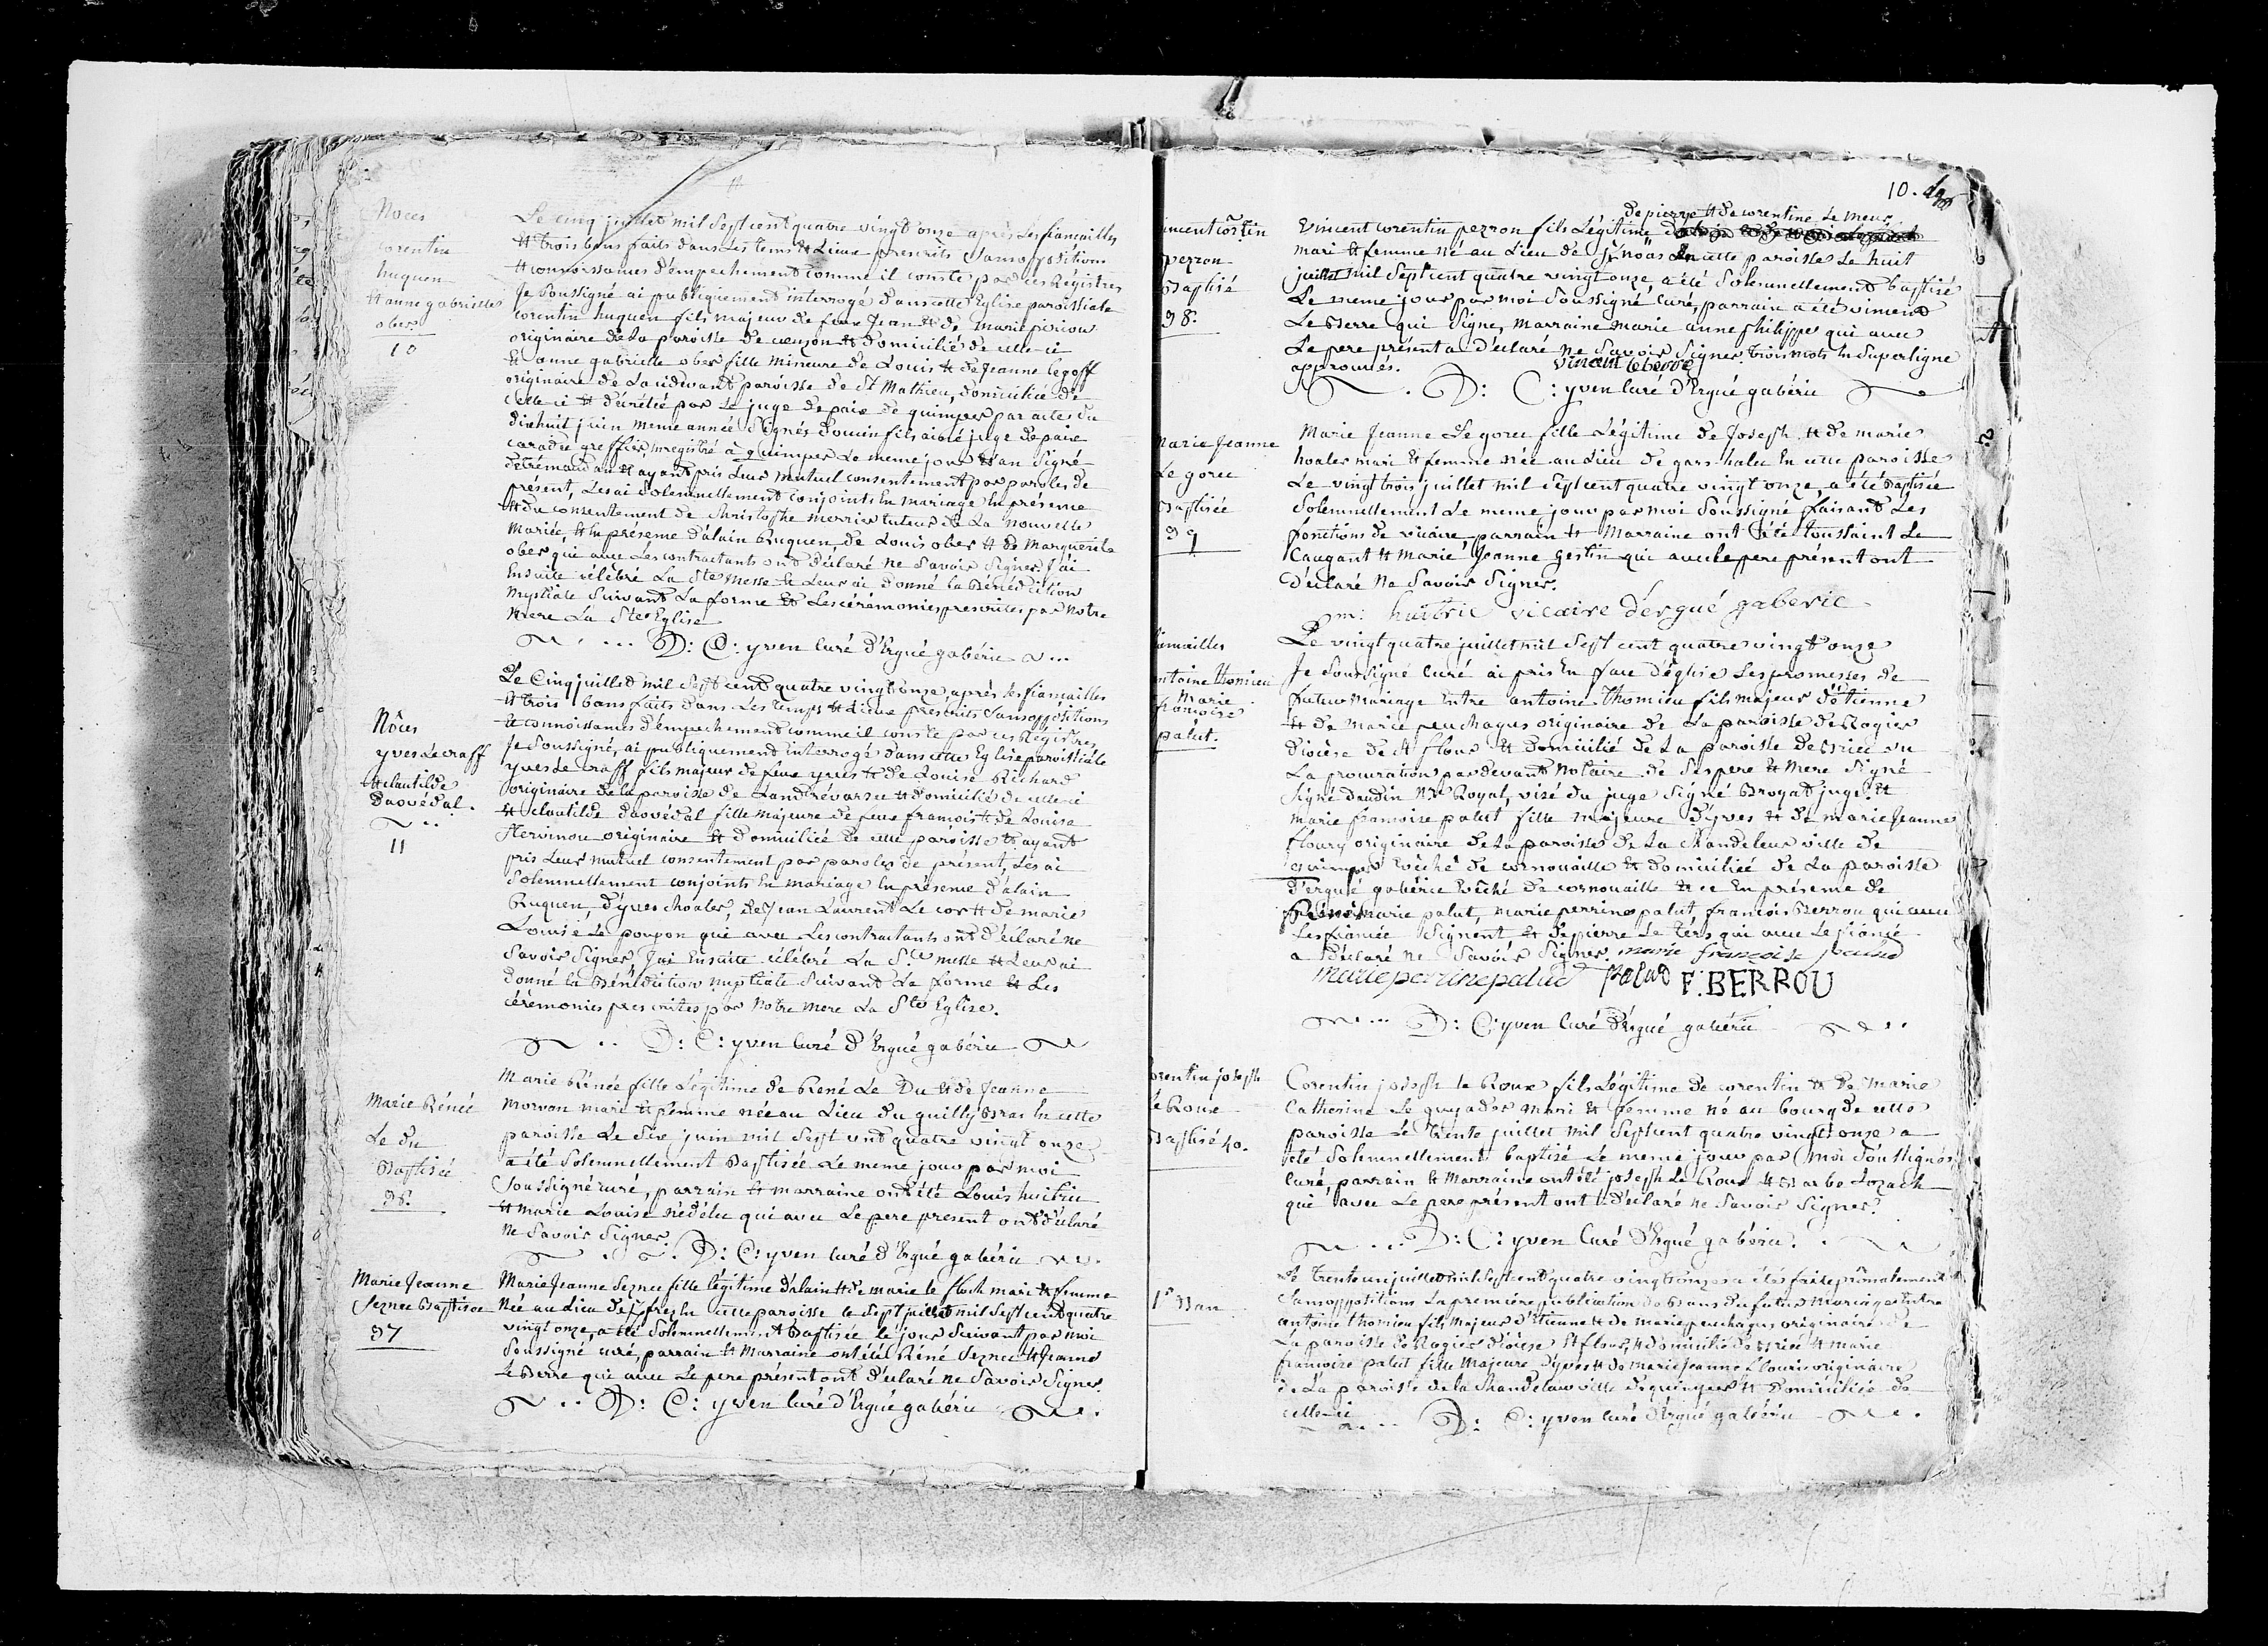 Nôces
corentin
huguen
et anne gabrielle
ober
10
Le cinq juillet mil Sept cent quatre vingt onze après Les fiancailles
et trois bans faits dans Les tems et Lieux prescrits Sans oppositions
et connoissances d'empechement comme il conste par ces Régistres
Je Soussigné ai publiquement interrogé dans cette Eglise paroissiale
corentin huguen fils majeur de feu Jean et de marie piriou
originaire de La paroisse de et domicilié de celle-ci
et anne gabrielle ober fille mineure de Louis et de Jeanne legoff
originaire de La cidevant paroisse de St Mathieu, domiciliée de
celle ci et décrétée par Le juge de paix de quimper par acte du
dixhuit juin meme année Signés fils ainé juge de paix
greffier, enregistré à quimper Le meme jour et an Signé
et ayant pris Leur mutuel consentement par paroles de
présent, Les ai Solemnellement conjoints En mariage En présence
et du consentement de Christophe merrier tuteur de La nouvelle
mariée, et En présence d'alain huguen, de Louis ober et de Marguerite
ober qui avec Les contractants ont déclaré ne Savoir Signer. J'ai
Ensuite célébré La Ste Messe et Leur ai donné la Bénédiction
nuptiale Suivant La forme et Les cérémonies prescrites par Notre
Mere La Ste Eglise
D: C: yven Curé d'Ergué gabéric
Nôces
yves Le craff
et clautilde
daovédal.
11
Le Cinq juillet mil Sept cent quatre vingt onze après les fiancailles
et trois bans faits dans Les temps et Lieux prescrits Sans oppositions
et connoissances d'empechement comme il conste par ces Régistres
Je Soussigné, ai publiquement interrogé dans cette Eglise paroissiale
yves Le craff fils majeur de feu yves et de Louise Richard
originaire de la paroisse de Landrévarzec et domicilié de celle-ci
et clautilde daovédal fille majeure de feu francois et de Louise
Hervinou originaire et domiciliée de cette paroisse et ayant
pris Leur mutuel consentement par paroles de présent, Les ai
Solemnellement conjoints En mariage En présence d'alain
huguen, d'yves hoaler, de Jean Laurent Le cor et de marie
Louise Le poupon qui avec Les contractants ont déclaré ne
Savoir Signer, J'ai Ensuite célébré La Ste messe et Leur ai
donné la Bénédiction nuptiale Suivant La forme et Les
cérémonies prescrites par Notre Mere La Ste Eglise.
D: C: yven Curé d'Ergué gabéric
Marie Rénée
Le du
Baptisée
36.
Marie Rénée fille Légitime de René Le Du et de Jeanne
morvan mari et femme née au Lieu du quilly Bras En cette
paroisse Le Six juin mil Sept cent quatre vingt onze
a été Solemnellement Baptisée Le meme jour par moi
Soussigné curé, parrain et marraine ont été Louis huitric
et marie Louise nédélec qui avec Le pere present ont déclaré
ne Savoir Signer.
D: C: yven Curé d'Ergué gabéric
Marie Jeanne
Seznec Baptisée
37
Marie Jeanne Seznec fille légitime d'alain et de marie le floch mari et femme
Née au Lieu de En cette paroisse le Sept juillet mil Sept cent quatre
vingt onze, a été Solemnellement Baptisée le jour Suivant par moi
Soussigné curé, parrain et Marraine ont été Réné Seznec et Jeanne
Le Berre qui avec Le pere présent ont déclaré ne Savoir Signer.
D: C: yven Curé d'Ergué gabéric
10.
de pierre et de corentine Le meur
perron
Baptisé
38.
Vincent Corentin perron fils Légitime
mari et femme né au Lieu de En cette paroisse Le huit
juillet mil Sept cent quatre vingt onze, a été Solemnellement baptisé
Le meme jour par moi Soussigné Curé, parrain a été vincent
Le Berre qui Signe, Marraine marie anne philippe qui avec
Le pere présent a déclaré ne Savoir Signer. trois mots En Superligne
approuvés.
vincent leberre
D: C: yven Curé d'Ergué gabéric
Marie Jeanne
Le gorec
Baptisée
39
Marie Jeanne Le gorec fille Légitime de Joseph et de marie
hoaler mari et femme née au Lieu de gars-halec En cette paroisse
Le vingt trois juillet mil Sept cent quatre vingt onze, a été Baptisée
Solemnellement Le meme jour par moi Soussigné faisant Les
fonctions de vicaire parrain et Marraine ont été toussaint Le
Caugant et Marie Jeanne gestin qui avec le pere présent ont
déclaré ne Savoir Signer.
m: huitric vicaire d'ergué gaberic
antoine thomieu
Marie
francoise
palut.
Le vingt quatre juillet mil Sept cent quatre vingt onze
Je Soussigné Curé ai pris En face d'église Les promesses de
futur mariage Entre antoine thomieu fils majeur d'étienne
et de marie peuchagus originaire de La paroisse de Rogier
diocèse de St flour et domicilié de La paroisse de Briec vu
La procuration par devant Notaire de Ses pere et Mere Signé
Signé daudin Nre Royal, visé du juge Signé Broyat juge. et
marie francoise palut fille majeure d'yves et de marie Jeanne
floury originaire de La paroisse de La chandeleur ville de
quimper Evêché de cornouaille et domiciliée de La paroisse
d'ergué gabéric Evêché de cornouaille et ce En présence de
Marie palut, marie perrine palut, francois Berrou qui avec
La fiancée Signent et de pierre Le ters qui avec Le fiancé
a déclaré ne Savoir Signer. marie françoise palud
marie perrine palud palud F. BERROU
D: C: yven Curé d'Ergué gabéric
Corentin joseph
Le Roux
Baptisé 40.
Corentin joseph le Roux fils Légitime de corentin et de Marie
Catherine Le guyader mari et femme né au bourg de cette
paroisse Le trente juillet mil Sept cent quatre vingt onze a
été Solemnellement baptisé Le meme jour par moi Soussigné
Curé, parrain et Marraine ont été joseph Le Roux et Barbe Lozach
qui avec Le pere présent ont déclaré ne Savoir Signer.
D: C: yven Curé d'Ergué gabéric.
1r Ban
Le trente un juillet mil Sept cent quatre vingt onze a été faite prônalement
Sans oppositions La premiére publication de Bans du futur Mariage Entre
antoine thomieu fils Majeur d'Etienne et de marie peuchagus originaire de
La paroisse de Rogier diocèse St flour, et domicilié de Briec et marie
francoise palut fille Majeure d'yves et de marie Jeanne flouri originaire
de La paroisse de la Chandeleur ville de quimper et domiciliée de
celle-ci
D: C: yven Curé d'Ergué gabéric